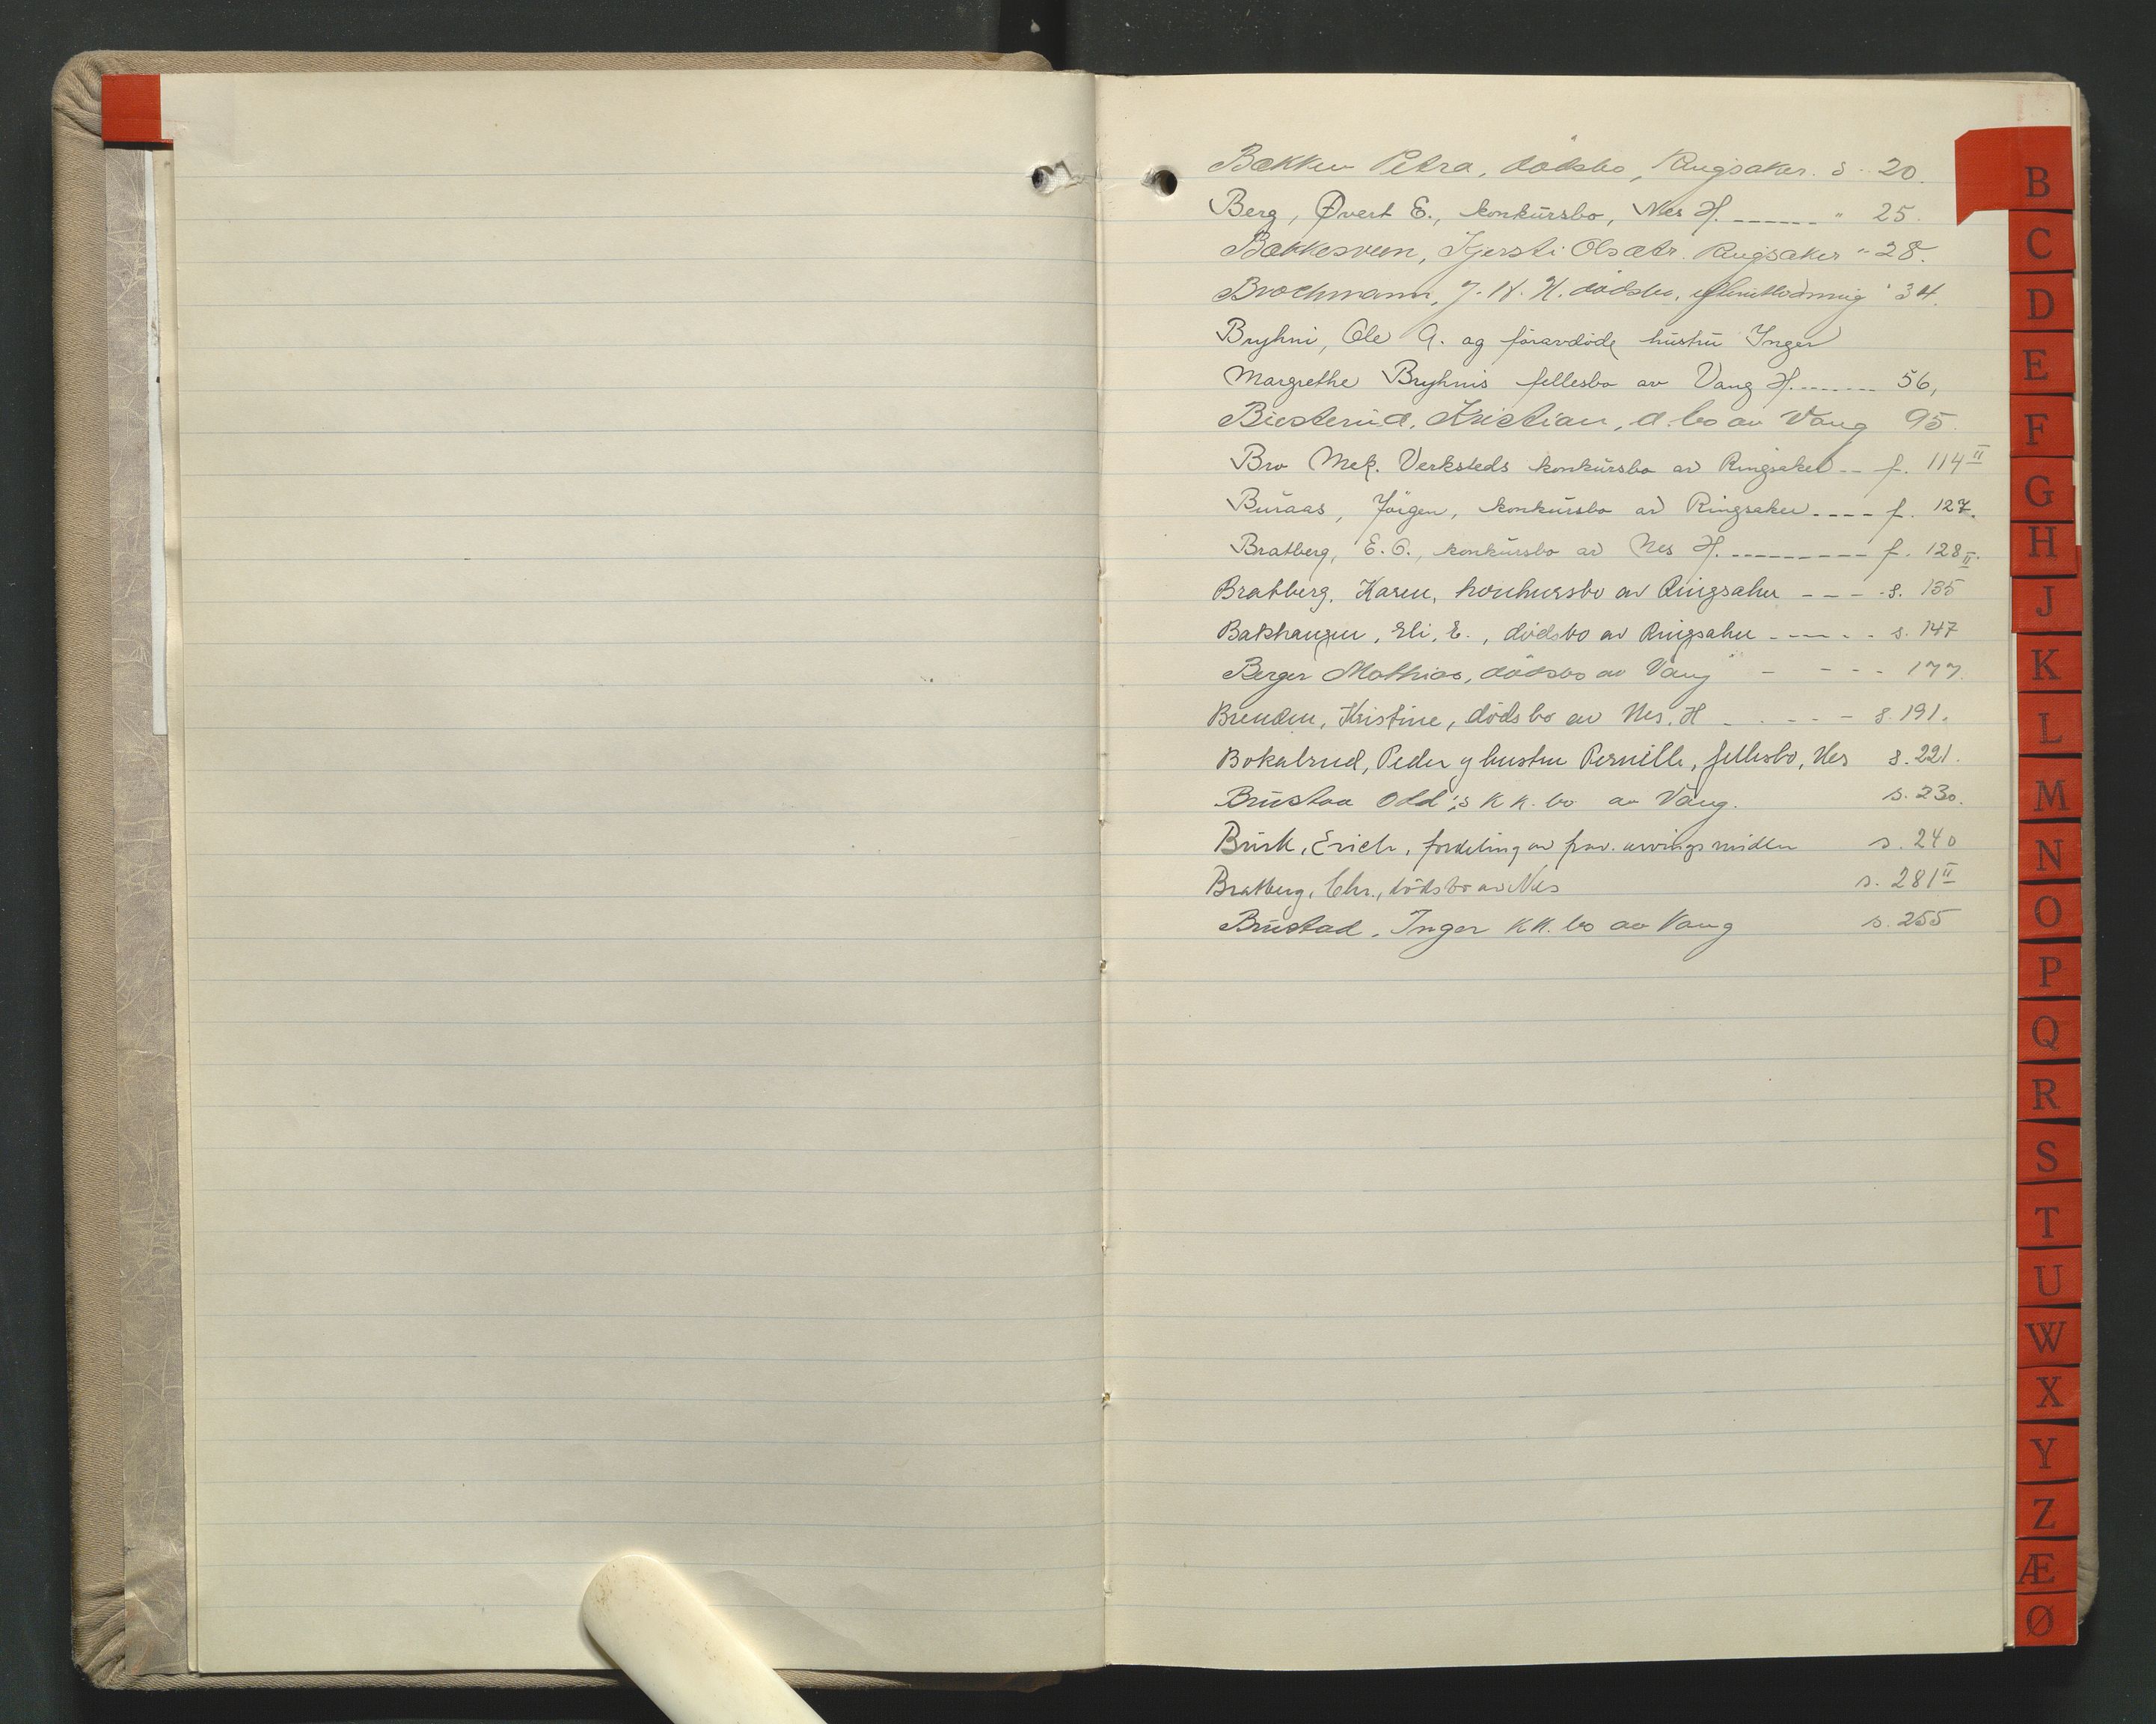 Bækken Petra, dödsbo, Ringsaker. s. 20.
Berg, Øvert E., konkursbo, Nes H. ------ " 25.
Bækkesveen, Kjersti Olsdtr. Ringsaker " 28.
Brochmann, J. H. H. dödsbo, " 34.
Bryhni, Ole A. og föravdöde hustru Inger
Margrethe Bryhnis fellesbo av Vang H. ------- 56,
Biesterud, Kristian, d.bo av Vang 95.
Bro Mek. Verksteds konkursbo av Ringsaker -- f. 114 II
Buraas, Jörgen, konkursbo av Ringsaker ---- f. 127.
Bratberg, E. O., konkursbo av Nes H. --------- f. 128 II.
Bratberg, Karen, konkursbo av Ringsaker - - - - s. 135
Bakshaugen, Eli, E., dödsbo av Ringsaker - --- - - s. 147
Berger Mathias, dödsbo av Vang - - - - 177.
Brenden, Kristine, dödsbo av Nes. H - . - - - s. 191.
Bokalrud, Peder og hustru Pernille, fellesbo, Nes s. 221.
Brustad Odd's KK. bo av Vang. s. 230.
Burk, Erich, fordeling av innvingsmidler s. 240
Bratberg, Chr., dödsbo av Nes s. 281 II
Brustad, Inger KK. bo av Vang s. 255
B
C
D
E
F
G
H
J
K
L
M
N
O
P
Q
R
S
T
U
W
X
Y
Z
Æ
Ø